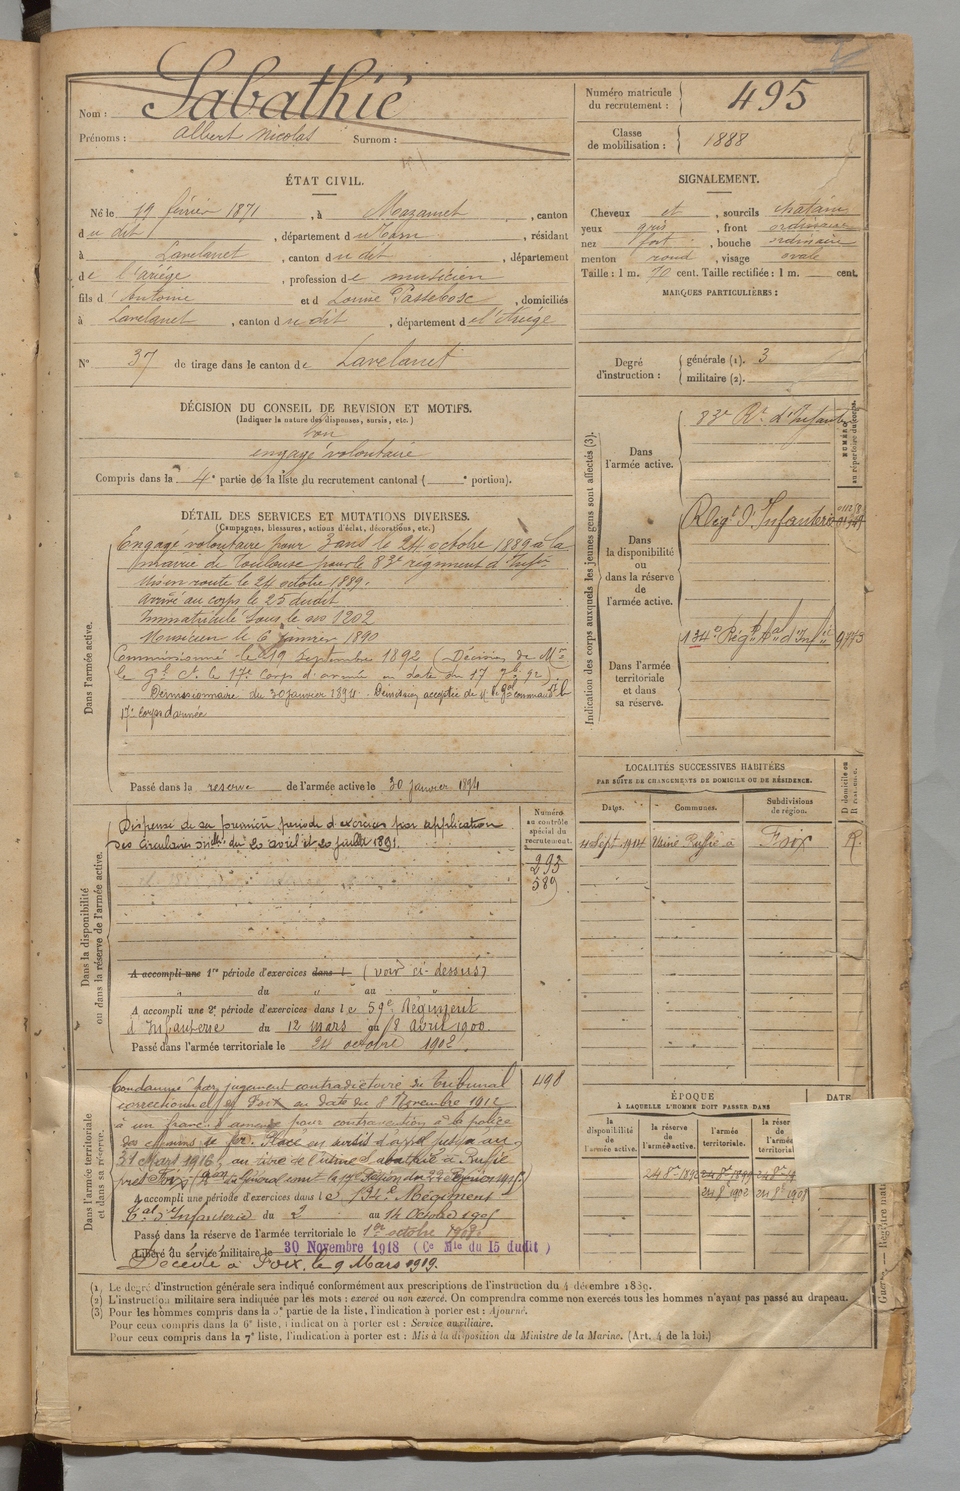 Nom : Sabathié
Prénoms : Albert Nicolas Surnom :
Numéro matricule du recrutement : 495
Classe de mobilisation : 1888
ÉTAT CIVIL.
Né le 19 février 1871, à Mazamet, canton
du dit, département du Tarn, résidant
à Lavelanet, canton du dit, département
de l'Ariège, profession de musicien
fils d'Antoine et d Louise Castebosc, domiciliés
à Lavelanet, canton du dit, département de l'Ariège
N° 37 de tirage dans le canton de Lavelanet
SIGNALEMENT.
Cheveux et, sourcils chatains
yeux gris, front ordinaire
nez fort, bouche ordinaire
menton rond, visage ovale
Taille : 1 m. 70 cent. Taille rectifiée : 1 m. cent.
MARQUES PARTICULIÈRES :
Degré d'instruction : générale (1). 3
militaire (2).
DÉCISION DU CONSEIL DE REVISION ET MOTIFS.
(Indiquer la nature des dispenses, sursis, etc.)
bon
engagé volontaire
Compris dans la 4e partie de la liste du recrutement cantonal ( e portion).
DÉTAIL DES SERVICES ET MUTATIONS DIVERSES.
(Campagnes, blessures, actions d'éclat, décorations, etc.)
Dans l'armée active.
Engagé volontaire pour 3 ans le 24 octobre 1889 à la
mairie de Toulouse pour le 83e régiment d'Infie
Mis en route le 24 octobre 1889.
Arrivé au corps le 25 dudit
Immatriculé sous le no 1202
Musicien le 6 janvier 1890
Commissionné le 19 Septembre 1892 (Décision de Mr
le Gal Ct le 17e Corps d'armée en date du 17 7bre 92)
Démissionnaire du 30 janvier 1894. Démission acceptée de Mr le Gal commandt le
17e Corps d'armée
Passé dans la reserve de l'armée active le 30 janvier 1894
Indication des corps auxquels les jeunes gens sont affectés (3).
NUMÉRO au répertoire du corps.
Dans l'armée active.
83e Rt d'Infanterie
Dans la disponibilité ou dans la réserve de l'armée active.
Régt d'Infanterie
Dans l'armée territoriale et dans sa réserve.
134e Régt tal d'Infie
LOCALITÉS SUCCESSIVES HABITÉES
PAR SUITE DE CHANGEMENTS DE DOMICILE OU DE RÉSIDENCE.
Dates. Communes. Subdivisions de région. D domicile ou R résidence.
4 Sept. 1914 Usine Rufié à Foix R.
Dans la disponibilité ou dans la réserve de l'armée active.
Numéro au contrôle spécial du recrutement.
Dispensé de sa première période d'exercices par application
des circulaires minlles du 20 avril et 20 juillet 1891.
293
589
A accompli une 1re période d'exercices dans l (voir ci-dessus)
du au
A accompli une 2e période d'exercices dans le 59e Régiment
d'Infanterie du 12 mars au 8 avril 1900.
Passé dans l'armée territoriale le 24 octobre 1902.
Dans l'armée territoriale et dans sa réserve.
498
Condamné par jugement contradictoire du Tribunal
correctionnel de Foix en date du 8 Novembre 1912
à un franc d'amende pour contravention à la police
des chemins de fer. Placé en sursis d'appel jusqu'au
31 Mars 1916, au titre de l'usine Sabathié à Rufié
près Foix
A accompli une période d'exercices dans le 134e Régiment
tal d'Infanterie du 2 au 14 Octobre 1905
Passé dans la réserve de l'armée territoriale le 1er octobre 1908.
Libéré du service militaire le 30 Novembre 1918 (Ce Mle du 15 dudit)
Décédé à Foix, le 9 Mars 1919.
ÉPOQUE
À LAQUELLE L'HOMME DOIT PASSER DANS
DATE
la disponibilité de l'armée active. la réserve de l'armée active. l'armée territoriale. la réserve de l'armée territoriale
24 8re 1892 24 8re 1899
24 8re 1902 24 8re 1908
(1) Le degré d'instruction générale sera indiqué conformément aux prescriptions de l'instruction du 4 décembre 1889.
(2) L'instruction militaire sera indiquée par les mots : exercé ou non exercé. On comprendra comme non exercés tous les hommes n'ayant pas passé au drapeau.
(3) Pour les hommes compris dans la 5e partie de la liste, l'indication à porter est : Ajourné.
Pour ceux compris dans la 6e liste, l'indication à porter est : Service auxiliaire.
Pour ceux compris dans la 7e liste, l'indication à porter est : Mis à la disposition du Ministre de la Marine. (Art. 4 de la loi.)